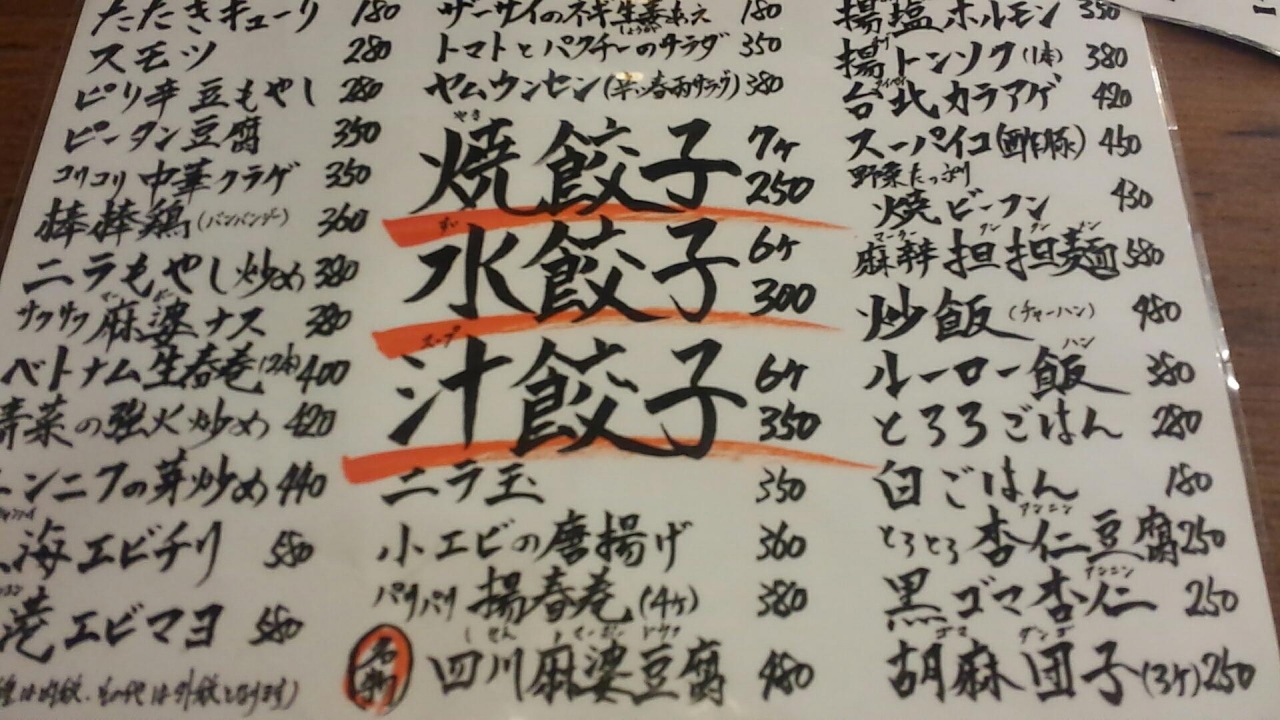 たたきキューリ 180
スモツ 280
ピリ辛豆もやし 280
ピータン豆腐 350
コリコリ中華クラゲ 350
棒棒鶏(バンバンジー) 360
ニラもやし炒め 380
サクサク麻婆ナス 380
ベトナム生春巻(2本) 400
青菜の強火炒め 420
ニンニクの芽炒め 440
海エビチリ 580
港エビマヨ 580
ザーサイのネギ生姜あえ 180
トマトとパクチーのサラダ 350
ヤムウンセン(辛い春雨サラダ) 380
やき
焼餃子 7ヶ 250
すい
水餃子 6ヶ 300
スープ
汁餃子 6ヶ 350
ニラ玉 350
小エビの唐揚げ 360
パリパリ揚春巻(4ヶ) 380
名物 四川麻婆豆腐 480
揚塩ホルモン 350
揚トンソク(1本) 380
台北カラアゲ 420
スーパイコ(酢豚) 450
野菜たっぷり
焼ビーフン 430
麻辣担担麺 580
炒飯(チャーハン) 480
ハン
ルーロー飯 380
とろろごはん 280
白ごはん 180
アンニン
とろとろ杏仁豆腐 250
アンニン
黒ゴマ杏仁 250
ゴマ ダンゴ
胡麻団子(3ヶ) 250